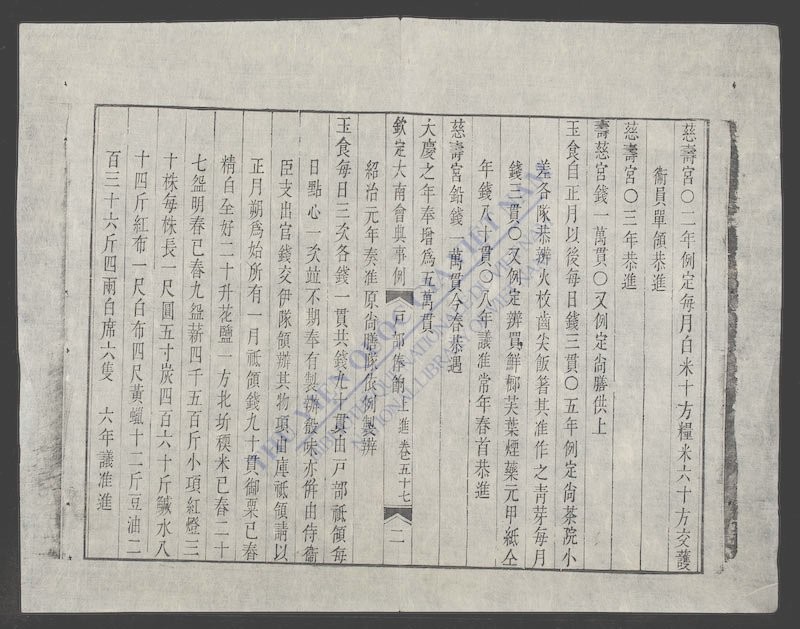 慈壽宮〇二年例定每月白米十方糧米六十方交護
衛員單領恭進
慈壽宮〇三年恭進
壽慈宮錢一萬貫〇又例定尚膳供上
玉食自正月以後每日錢三貫〇五年例定尚茶院小
差各隊恭辨火枚齒尖飯箸其准作之青芽每月
錢三貫〇又例定辨買鮮榔芙葉煙藥元甲紙仝
年錢八十貫〇八年議准常年春首恭進
慈壽宮鉛錢一萬貫今春恭遇
大慶之年奉增爲五萬貫
欽定大南會典事例 戶部俸餉 上進 卷五十七 二
紹治元年奏准原尚膳隊依例製辨
玉食每日三次各錢一貫共錢九十貫由戶部祗領每
日點心一次並不期奉有製辦般味亦併由侍衛
臣支出官錢交伊隊領辦其物項由庫祗領請以
正月朔爲始所有一月祗領錢九十貫御粟已舂
精白全好二十升花鹽一方北圻稬米已舂二十
七盌明舂已舂九盌薪四千五百斤小項紅燈三
十株每株長一尺圓五寸炭四百六十斤鹹水八
十四斤紅布一尺白布四尺黃蠟十二斤豆油二
百三十六斤四兩白席六隻 六年議准進
THƯ VIỆN QUỐC GIA VIỆT NAM
BIBLIOTHÈQUE NATIONALE DU VIETNAM
NATIONAL LIBRARY OF VIETNAM